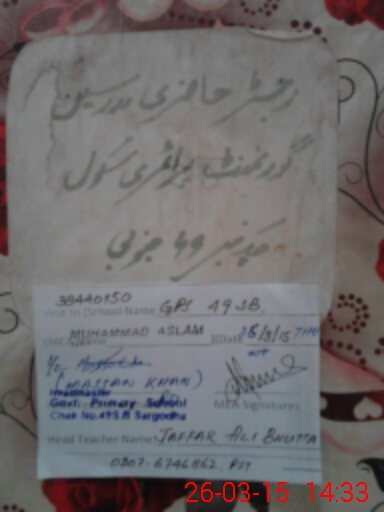 رجسٹر حاضری مدرسین
گورنمنٹ پرائمری سکول
چک نمبر 49 جنوبی
38440150
Visit to (School Name) GPS 49 SB.
MUHAMMAD ASLAM (Date) 26/3/15 THU
I/C
(HASSAN KHAN)
Headmaster
Govt. Primary School
Chak No.49 S.B Sargodha
MEA Signatures
Head Teacher Name JAFFAR ALI BHUTTA
0307-6746862 PST
26-03-15 14:33